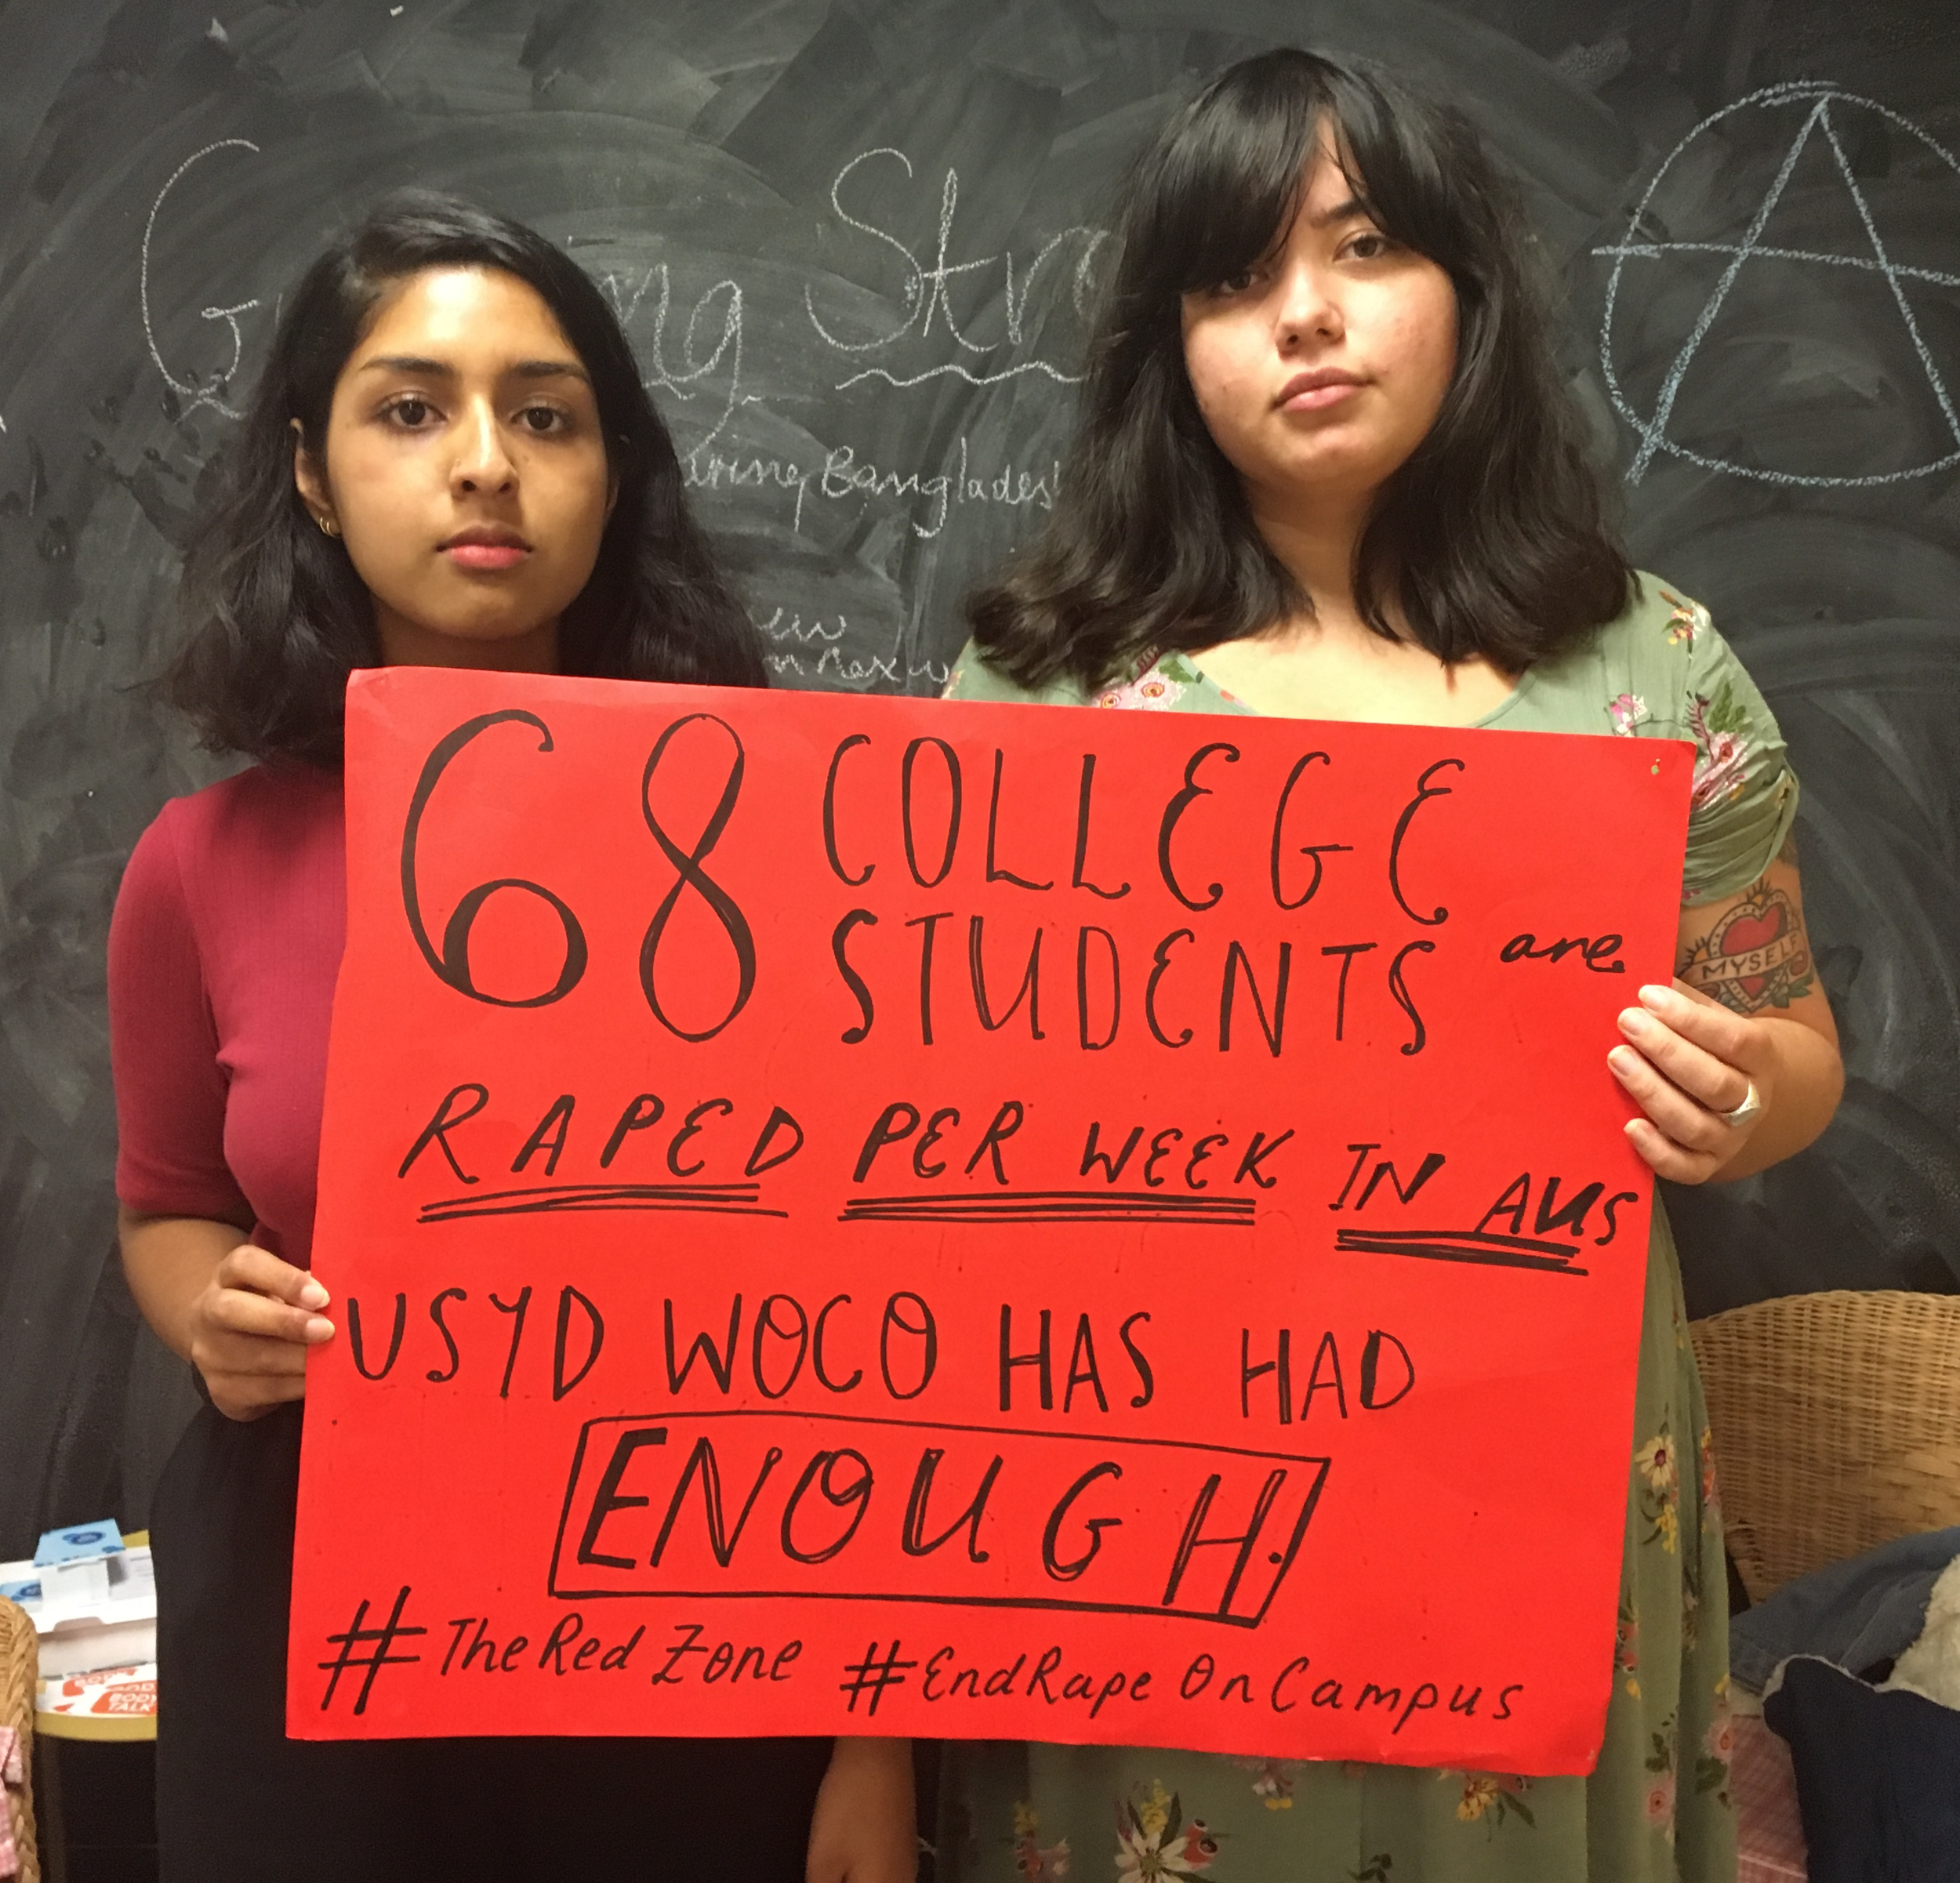 Str
Bangladesh
68 COLLEGE
STUDENTS are
RAPED PER WEEK IN AUS
USYD WOCO HAS HAD
ENOUGH.
#TheRedZone #EndRapeOnCampus
MYSELF
BODY
TALK
A